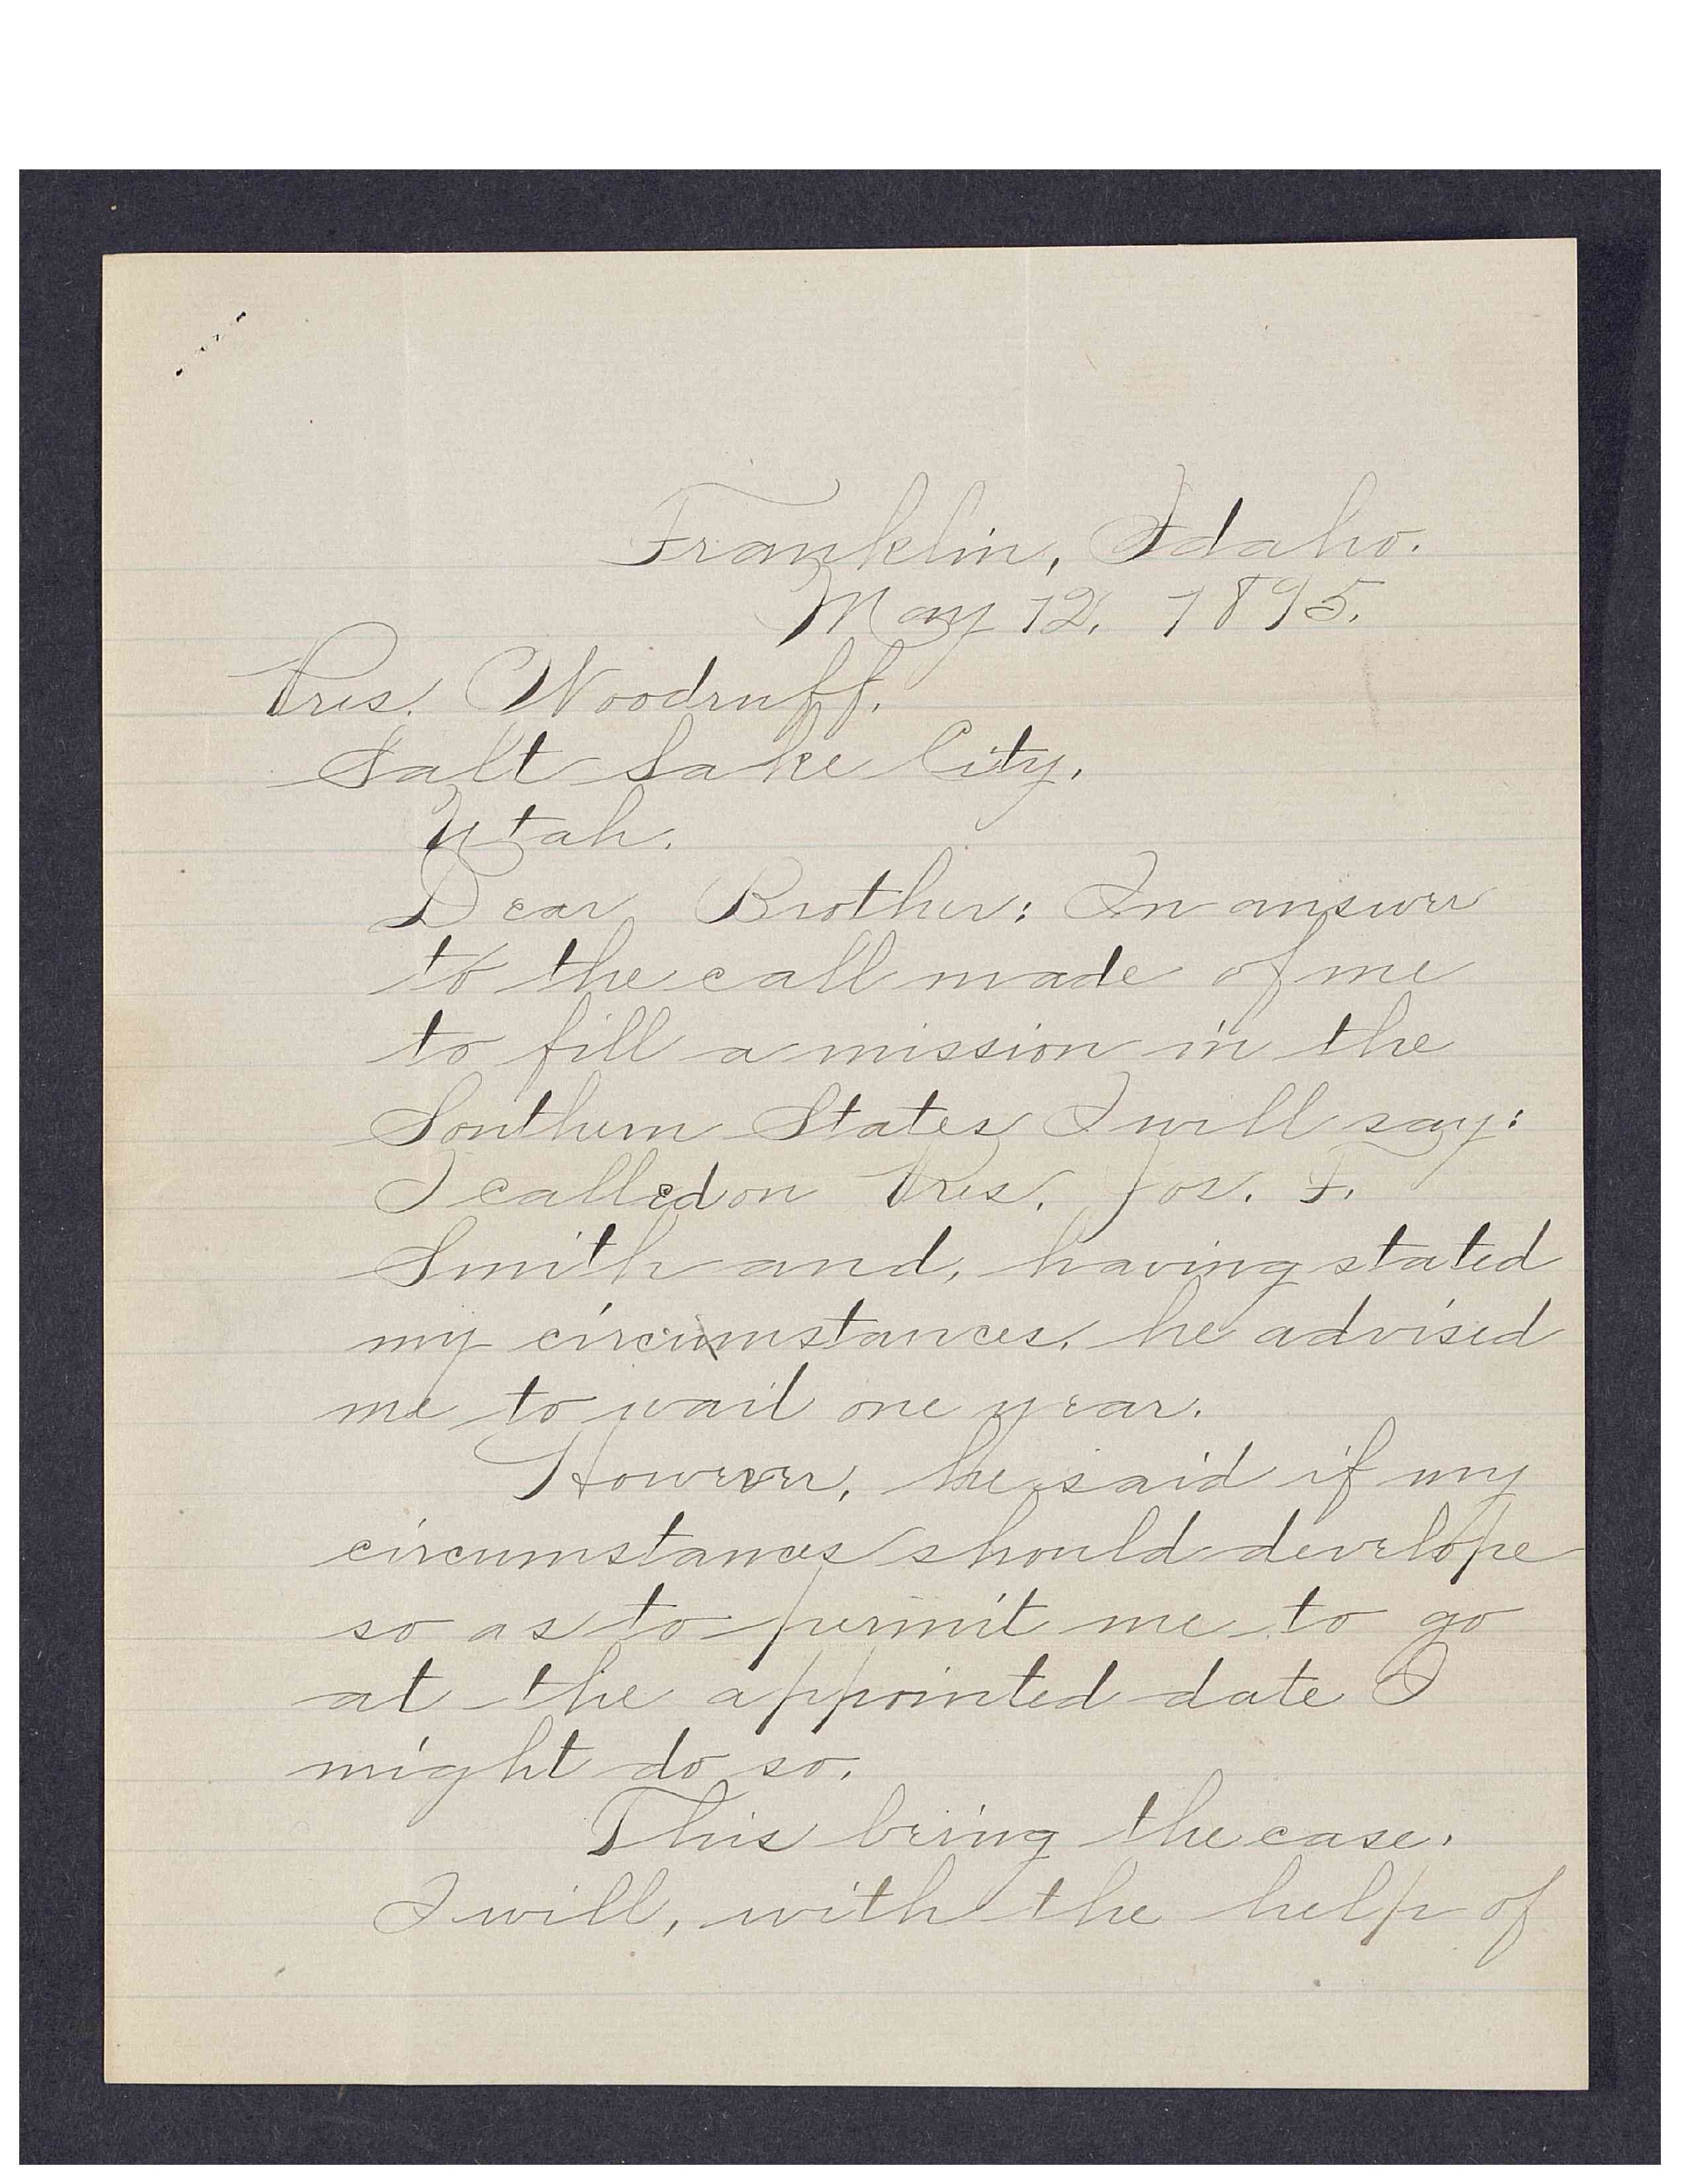 Franklin, Idaho.
May 12, 1895.
Pres. Woodruff.
Salt Lake City,
Utah.
Dear Brother: In answer
to the call made of me
to fill a mission in the
Southern States I will say:
I called on Pres. Jos. F.
Smith and, having stated
my circumstances, he advised
me to wait one year.
However, he said if my
circumstances should develope
so as to permit me to go
at the appointed date I
might do so.
This being the case,
I will, with the help of